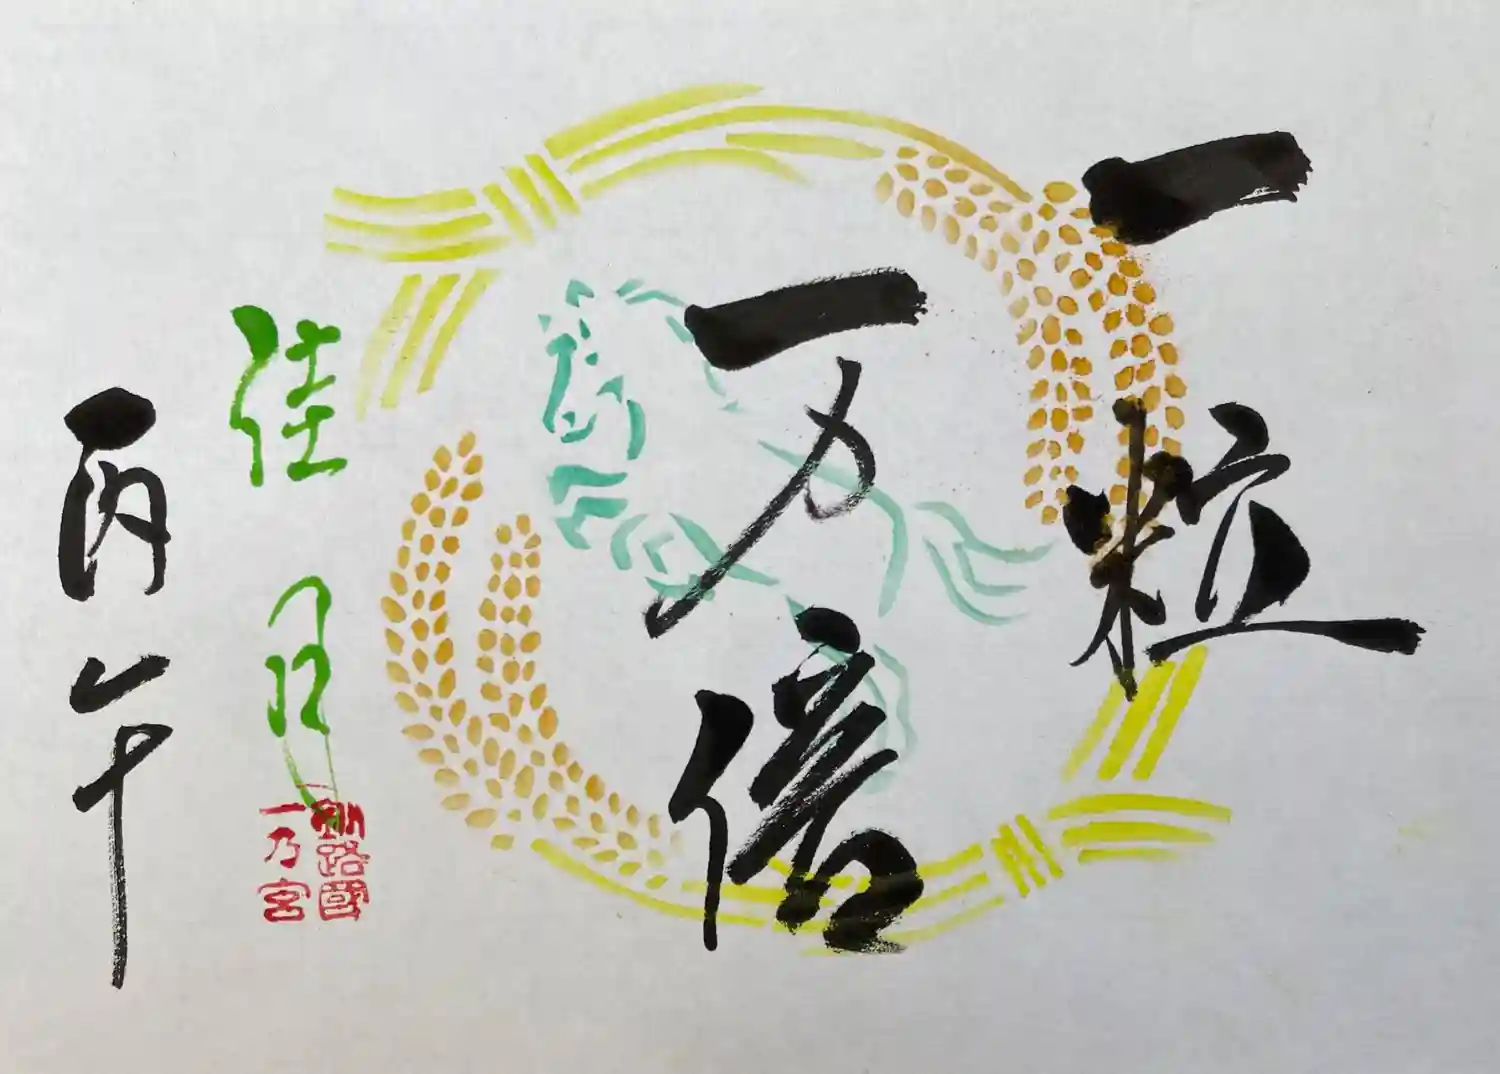 一粒
一万倍
佳月
丙午
釧路國
一乃宮